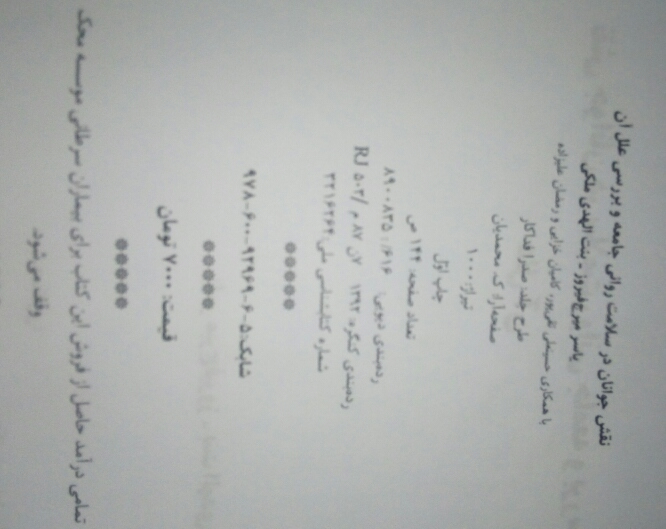 نقش جوانان در سلامت روانی جامعه و بررسی علل آن
یاسر میرج‌فیروز - بنت الهدی ملکی
با همکاری حسینعلی تقی‌پور، کامیان خزایی و رمضان علیزاده
طرح جلد: صدرا فداکار
صفحه‌آرا: ک. محمدیان
تیراژ: ۱۰۰۰
چاپ اوّل
تعداد صفحه: ۱۴۴ ص
رده‌بندی دیویی: ۶۱۶/۸۹۰۰۸۳۵
رده‌بندی کنگره: ۱۳۹۲ ن ۸۷ م / ۵۰۳ RJ
شماره کتابشناسی ملی: ۳۲۱۶۲۶۴
*****
شابک: ۵-۶-۹۲۹۶۹-۶۰۰-۹۷۸
*****
قیمت: ۷۰۰۰ تومان
*****
تمامی درآمد حاصل از فروش این کتاب برای بیماران سرطانی موسسه محک
وقف می‌شود.